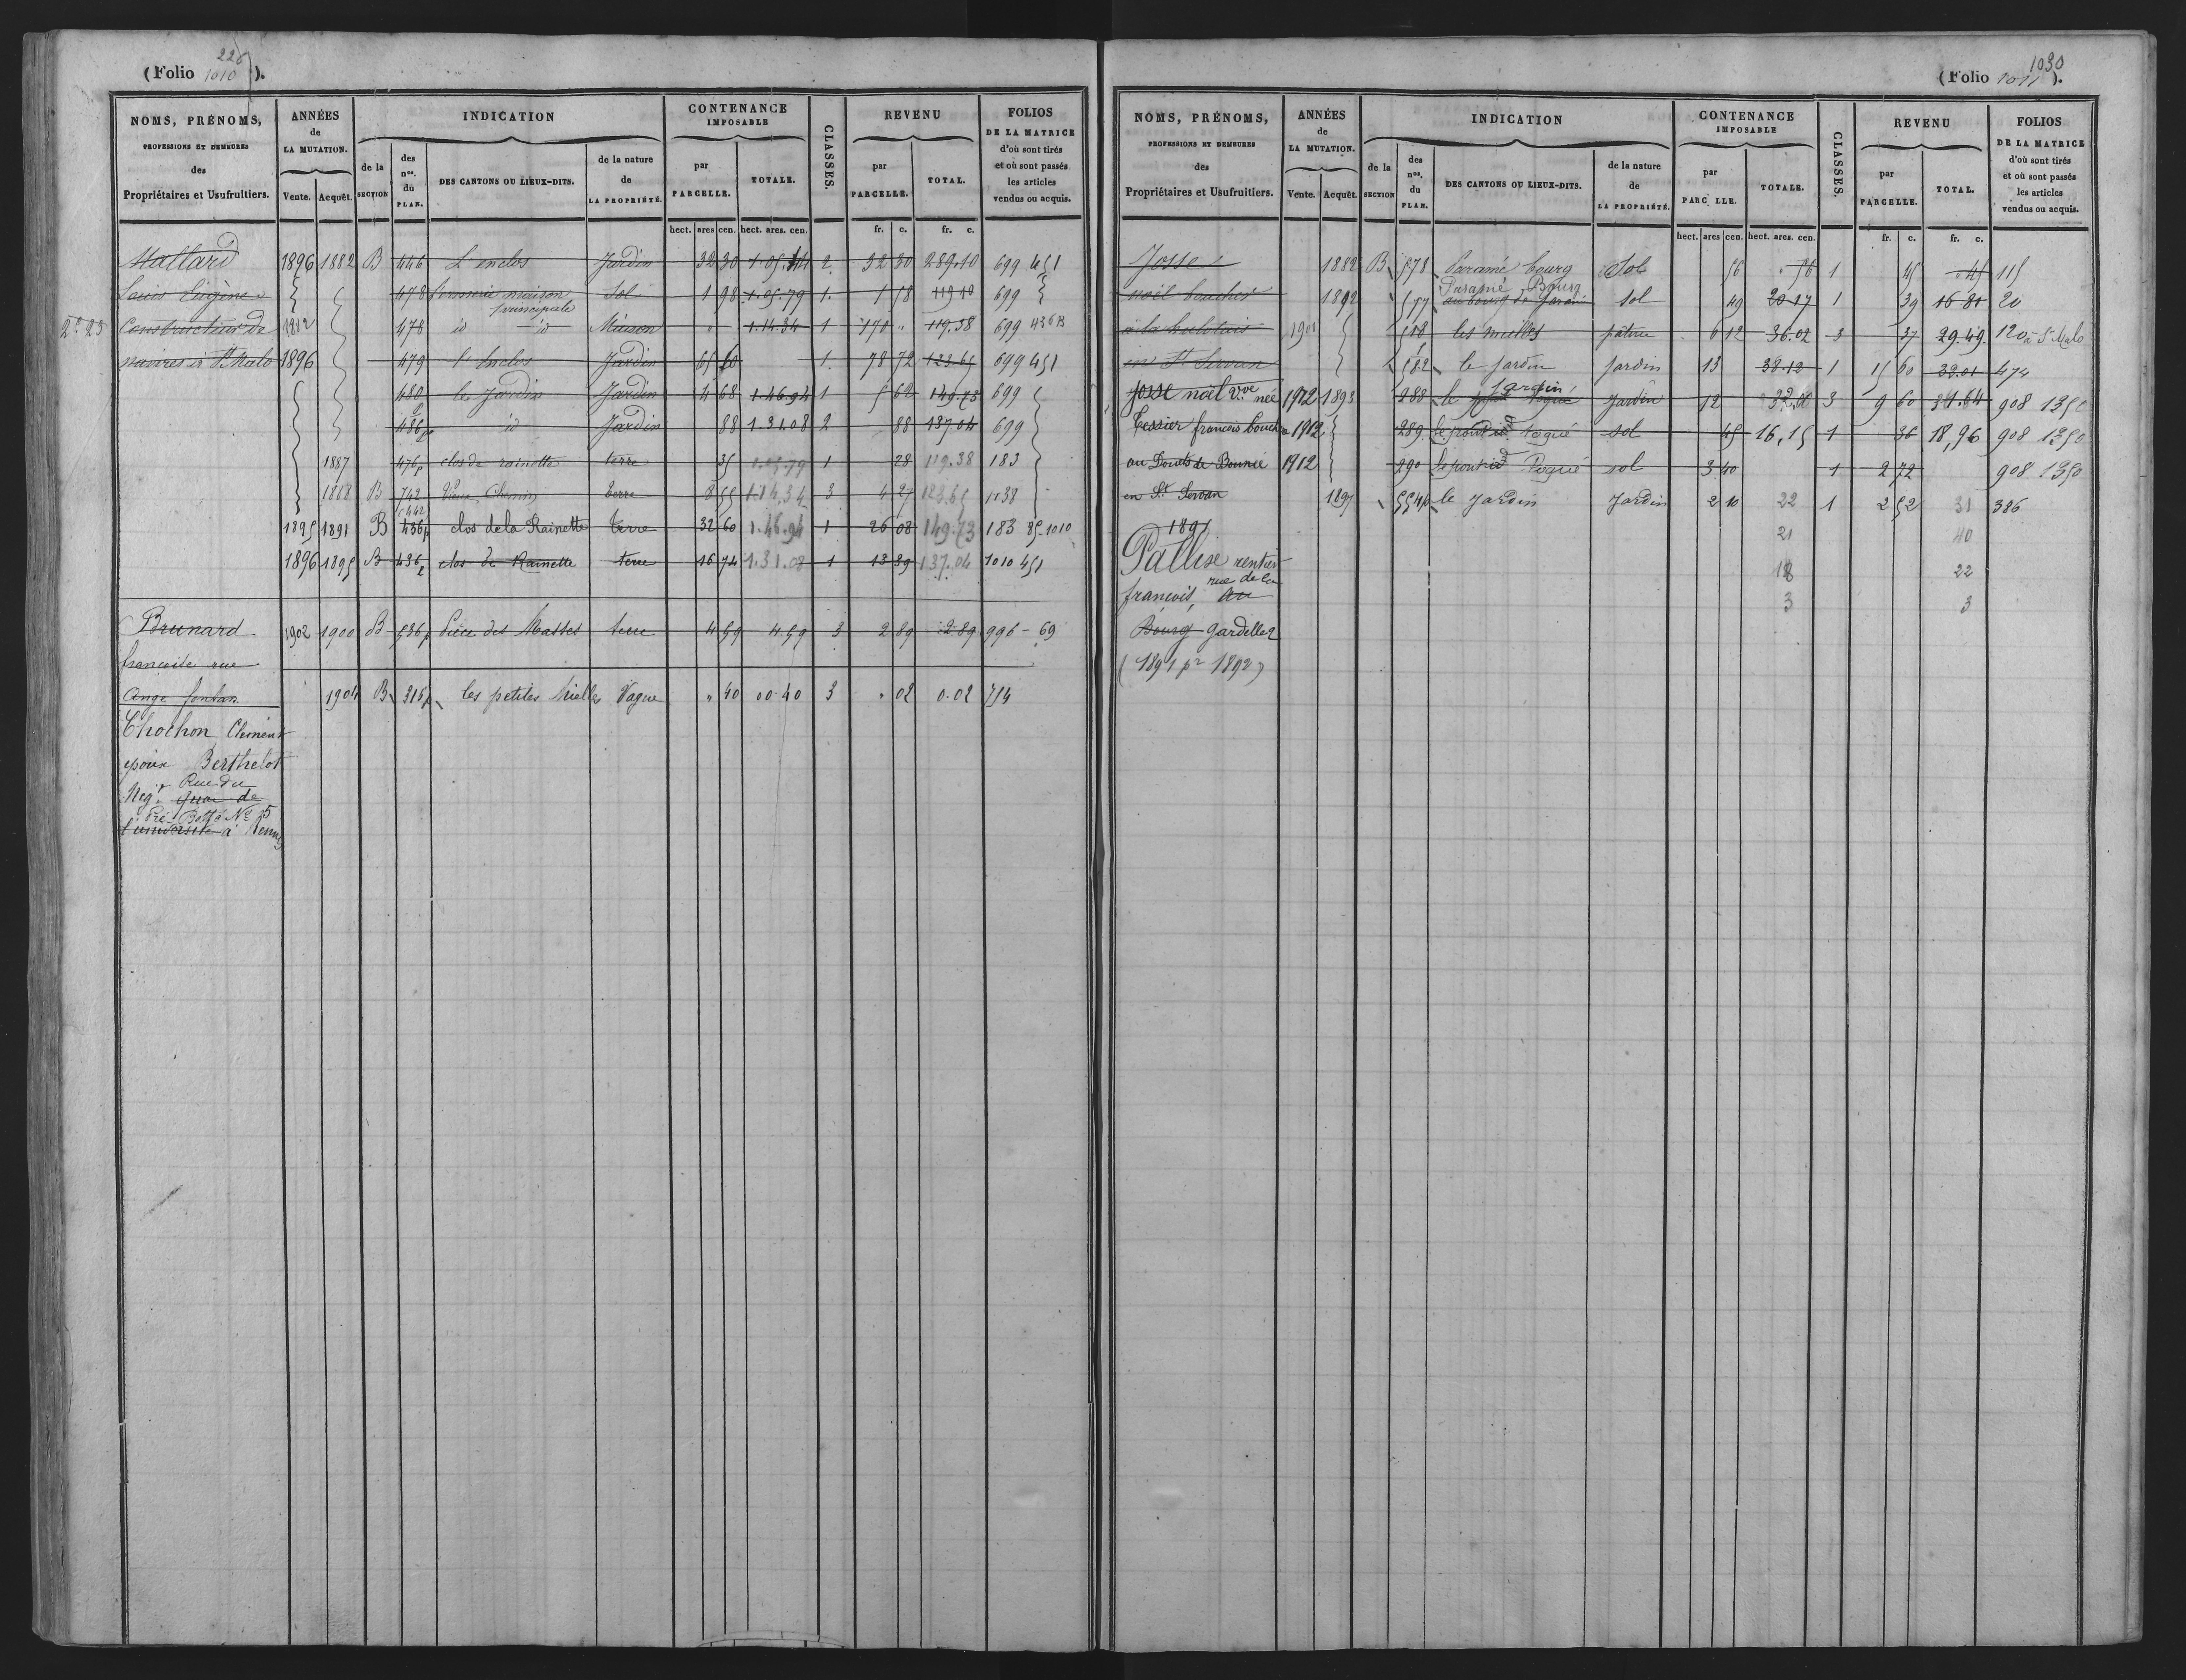 226
(Folio 1010).
NOMS, PRÉNOMS,
PROFESSIONS ET DEMEURES
des
Propriétaires et Usufruitiers.
ANNÉES
de
LA MUTATION.
Vente. Acquêt.
INDICATION
de la
SECTION
des
nos.
du
PLAN.
DES CANTONS OU LIEUX-DITS.
de la nature
de
LA PROPRIÉTÉ.
CONTENANCE
IMPOSABLE
par
PARCELLE.
TOTALE.
CLASSES.
REVENU
par
PARCELLE.
TOTAL.
FOLIOS
DE LA MATRICE
d'où sont tirés
et où sont passés
les articles
vendus ou acquis.
hect. ares cen. hect. ares. cen. fr. c. fr. c.
Mallard 1896 1882 B 446 L'enclos Jardin 32 30 2 32 30 289.10 699 451
Louis Eugène 478 maison Sol 1 98 1.05.79 1 1 58 119 40 699
principale
Constructeur de 1882 478 id id Maison " 1.14.34 1 170 " 119.38 699 436 B
navires à St Malo 1896 479 l'Enclos Jardin 65 60 1 78 72 123.65 699 451
480 le Jardin Jardin 4 68 1.46.94 1 5 62 149.73 699
486p id Jardin 88 1.31.08 2 88 137.04 699
1887 476p clos de rainette terre 35 1.05.79 1 28 119.38 183
1888 B 742 Vieux Chemin terre 8 55 1.14.34 3 4 27 123.65 1138
1895 1891 B 436p clos de la Rainette terre 32 60 1.46.94 1 26 08 149.73 183 85-1010
1896 1895 B 436p clos de Rainette terre 16 74 1.31.08 1 13 89 137.04 1010 451
Brunard 1902 1900 B 536p Pièce des Masses terre 4 59 4 59 3 2 89 2 89 996 - 69
françoise rue
Ange fontan 1904 B 315p les petites Nielles Vague " 40 00 40 3 " 02 0.02 714
Thochon Clément
époux Berthelot
Rue du
Negt quai de
Pré Botté No 5
l'université à Rennes
1030
(Folio 1011).
NOMS, PRÉNOMS,
PROFESSIONS ET DEMEURES
des
Propriétaires et Usufruitiers.
ANNÉES
de
LA MUTATION.
Vente. Acquêt.
INDICATION
de la
SECTION
des
nos.
du
PLAN.
DES CANTONS OU LIEUX-DITS.
de la nature
de
LA PROPRIÉTÉ.
CONTENANCE
IMPOSABLE
par
PARC LLE.
TOTALE.
CLASSES.
REVENU
par
PARCELLE.
TOTAL.
FOLIOS
DE LA MATRICE
d'où sont tirés
et où sont passés
les articles
vendus ou acquis.
hect. ares cen. hect. ares. cen. fr. c. fr. c.
Josse 1882 B 578 Paramé bourg Sol 56 " 56 1 45 " 45 115
Paramé Bourg
noël boucher 1892 557 au bourg le Jardin sol 49 20 17 1 39 16 81 20
à la hulotais 1901 518 les mielles pâture 6 12 36.02 3 37 29.49 120 à St Malo
en St Servan 582 le jardin jardin 13 38.12 1 15 60 32.01 474
Jardin
Josse noël Vve née 1912 1893 288 le Jardin 12 3 9 60 31.64 908 1350
Tessier françois boucher 1912 289 le Pogué sol 45 16,15 1 36 18,96 908 1350
au Douets de Bounie 1912 290 Pogué sol 3 40 1 2 72 908 1350
en St Servan 1897 554p le Jardin Jardin 2 10 22 1 2 52 31 386
1891 21 40
Pallise rentier 18 22
rue de la
françois, au 3 3
Bourg Gardelles
(1891 pr 1892)